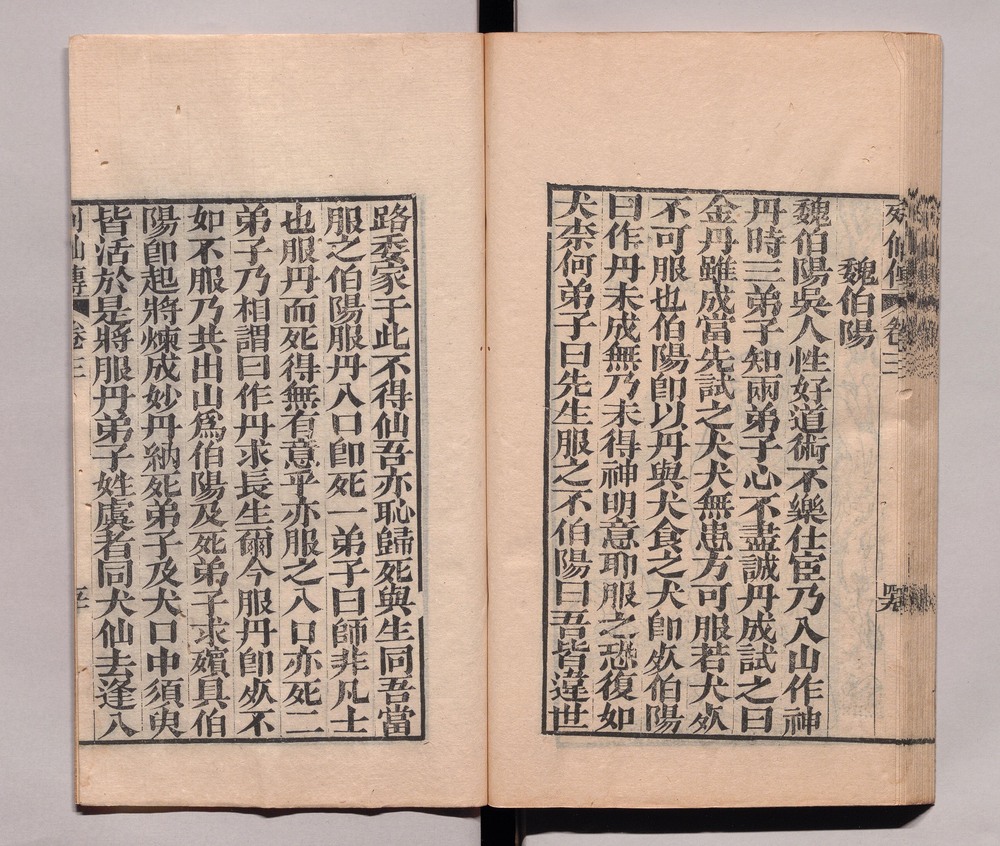 列仙傳 卷三
魏伯陽
魏伯陽吳人性好道術不樂仕宦乃入山作神
丹時三弟子知兩弟子心不盡誠丹成試之曰
金丹雖成當先試之犬犬無患方可服若犬死
不可服也伯陽卽以丹與犬食之犬卽死伯陽
曰作丹未成無乃未得神明意耶服之恐復如
犬柰何弟子曰先生服之不伯陽曰吾皆違世
路委家于此不得仙吾亦恥歸死與生同吾當
服之伯陽服丹入口卽死一弟子曰師非凡士
也服丹而死得無有意乎亦服之入口亦死二
弟子乃相謂曰作丹求長生爾今服丹卽死不
如不服乃共出山爲伯陽及死弟子求殯具伯
陽卽起將煉成妙丹納死弟子及犬口中須臾
皆活於是將服丹弟子姓虞者同犬仙去逢入
列仙傳 卷三